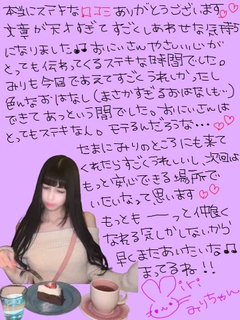 本当にステキな口コミありがとうございます♡♡
文章が天才すぎてすごくしあわせな気持ち
になりました♫♫おにぃさんやさしい心が
とっても伝わってくるステキな時間でした。
みりも今回であえてすごくうれしかったし
色んなおはなし(まさかすぎるおはなしも…)
できてあっという間でした。おにぃさんは
とってもステキなん。モテるんだろうな・・・♡♡
たまにみりのところにも来て
くれたらすごくうれしいし、次回は
もっと安心できる場所で
いたいなって思います♡♡
もっともーーっと仲良く
なれる気しかしないから
早くまたあいたいな♫♫
まってるね!!
Miri
みりちゃん